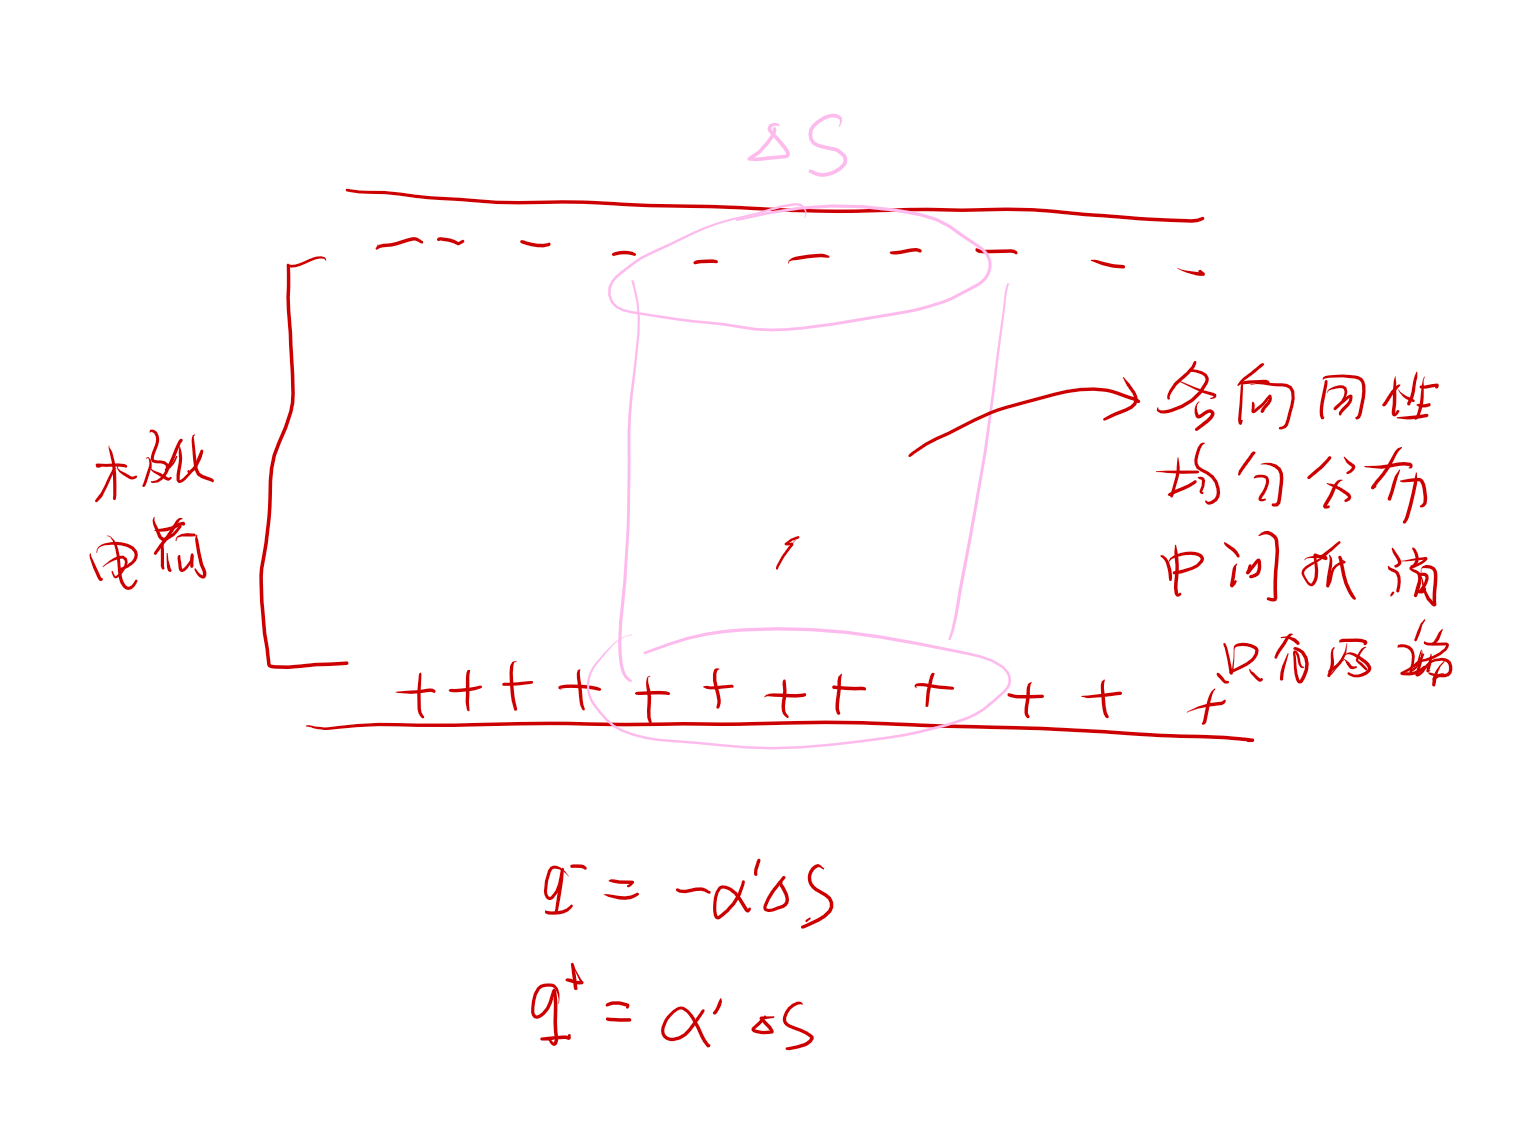 ΔS
极化
电荷
各向同性
均匀分布
中间抵消
只有两端
q⁻ = -α'ΔS
q⁺ = α'ΔS